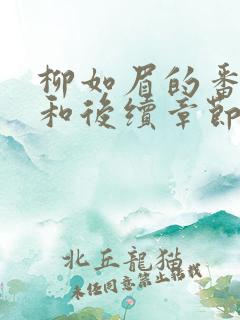 柳如眉的番
和後續章節
北丘龍貓
未经同意禁止转载